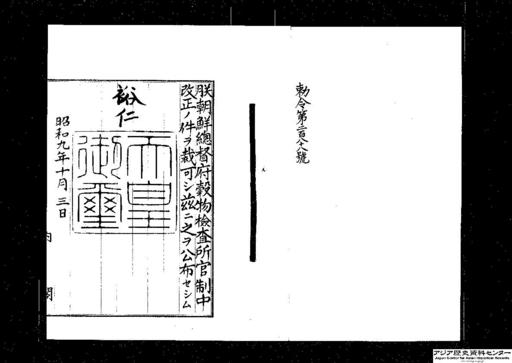 勅令第
號
朕朝鮮總督府穀物檢査所官制中
改正ノ件ヲ裁可シ茲ニ之ヲ公布セシム
裕仁
天皇
御璽
昭和九年十月三日
内閣
アジア歴史資料センター
Japan Center for Asian Historical Records